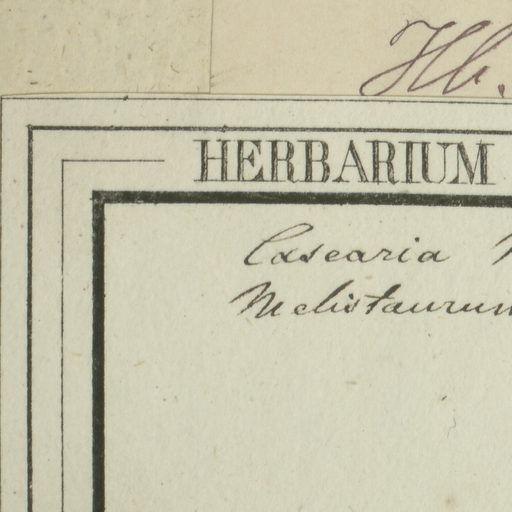 Hb.
HERBARIUM
Casearia
Melistaurum